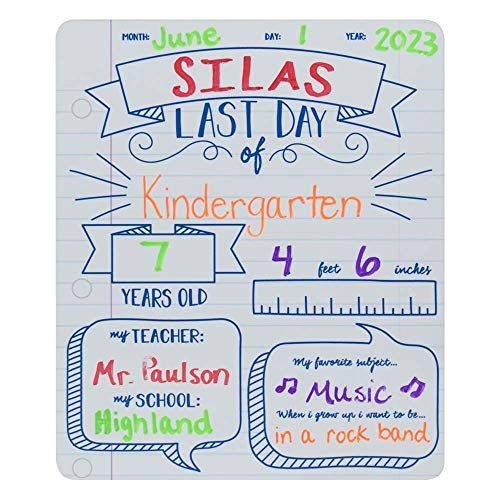 MONTH: June DAY: 1 YEAR: 2023
SILAS
LAST DAY
of
Kindergarten
7
YEARS OLD
4 feet 6 inches
my TEACHER:
Mr. Paulson
my SCHOOL:
Highland
my favorite subject...
Music
When i grow up i want to be...
in a rock band